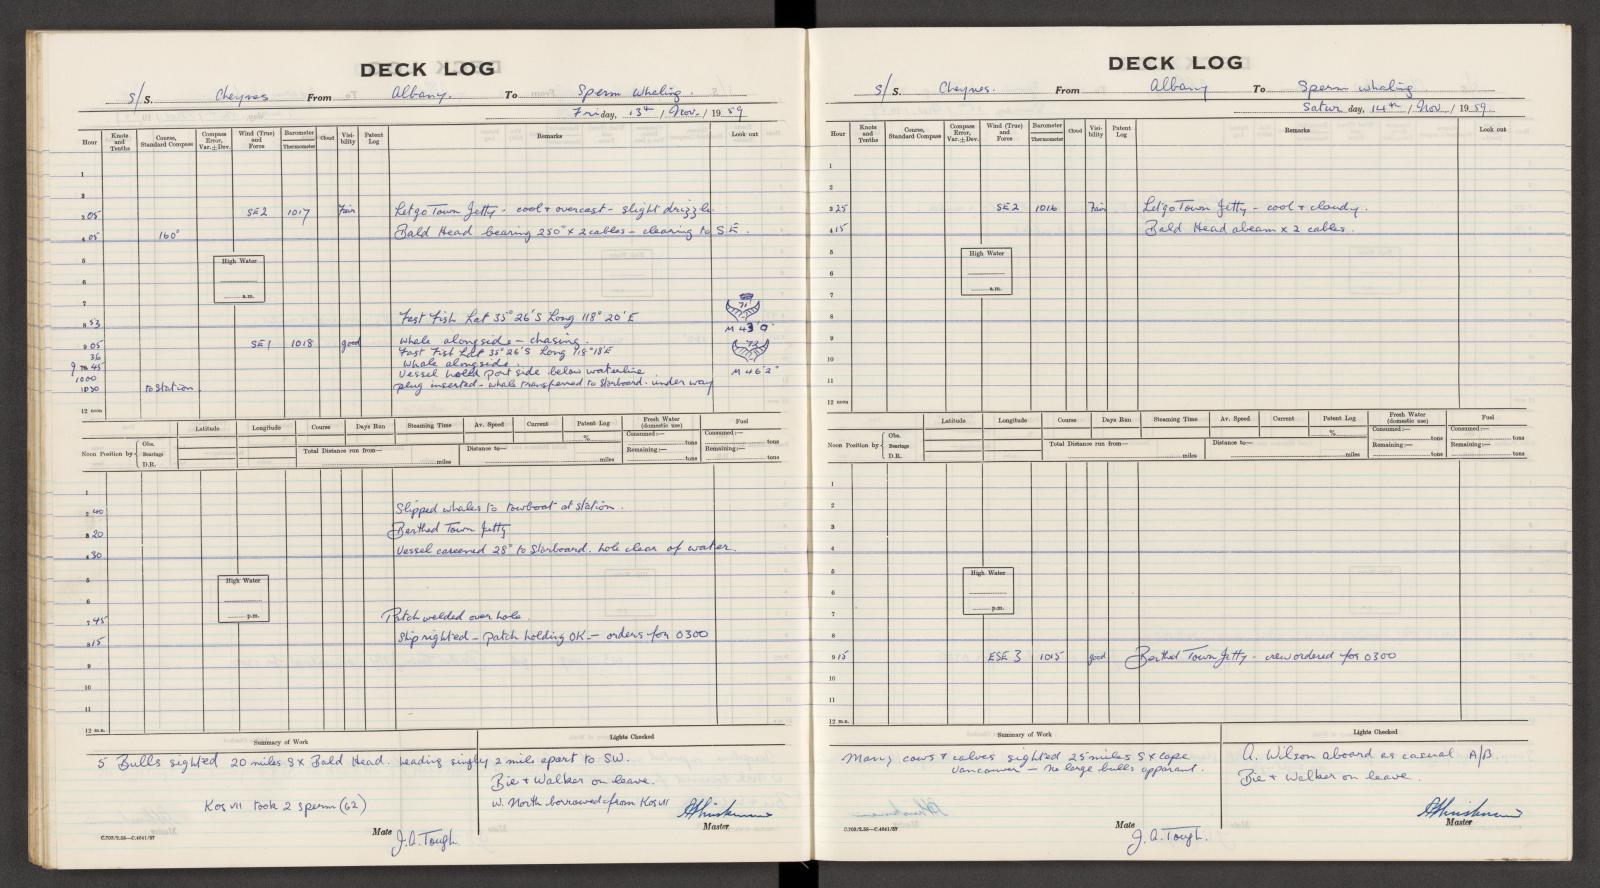 DECK LOG
S/S. Cheynes From Albany. To Sperm Whaling.
Friday, 13th / Nov. / 19 59
Hour Knots and Tenths Course, Standard Compass Compass Error, Var.±Dev. Wind (True) and Force Barometer Thermometer Cloud Visibility Patent Log Remarks Look out
1
2
3 05 SE2 1017 Fair Let go Town Jetty - cool + overcast - slight drizzle
4 05 160° Bald Head bearing 250° x 2 cables - clearing to SE.
5
High Water
6
a.m.
7
71
8 53 Fast Fish Lat 35° 26'S Long 118° 20'E
M 43'0"
9 05 SE1 1018 good whale alongside - chasing.
36 Fast Fish Lat 35° 26'S Long 118° 18'E
72
9 45 whale alongside.
1000 Vessel holed port side below waterline
M 46'2"
1030 to station. plug inserted - whale transferred to starboard. under way
12 noon
Latitude Longitude Course Days Run Steaming Time Av. Speed Current Patent Log Fresh Water (domestic use) Fuel
% Consumed:— tons Consumed:— tons
Noon Position by Obs. Bearings D.R. Total Distance run from— miles Distance to— miles Remaining:— tons Remaining:— tons
1
2 40 Slipped whales to towboat at station.
3 20 Berthed Town Jetty
4 30 Vessel careened 28° to starboard. hole clear of water.
5
High Water
6
p.m.
7 45 Patch welded over hole.
8 15 Ship righted - patch holding OK - orders for 0300
9
10
11
12 m.n.
Summary of Work Lights Checked
5 Bulls sighted 20 miles S x Bald Head. heading singly 2 mile apart to SW.
Bie + Walker on leave.
Kos VII took 2 sperm (62) W. North borrowed from Kos VII
Master
C.702/2.58—C.4041/57 Mate J.A. Tough
DECK LOG
S/S. Cheynes. From Albany To Sperm whaling
Saturday, 14th / Nov. / 19 59
Hour Knots and Tenths Course, Standard Compass Compass Error, Var.±Dev. Wind (True) and Force Barometer Thermometer Cloud Visibility Patent Log Remarks Look out
1
2
3 25 SE2 1016 Fair Let go Town Jetty - cool + cloudy.
4 15 Bald Head abeam x 2 cables.
5
High Water
6
a.m.
7
8
9
10
11
12 noon
Latitude Longitude Course Days Run Steaming Time Av. Speed Current Patent Log Fresh Water (domestic use) Fuel
% Consumed:— tons Consumed:— tons
Noon Position by Obs. Bearings D.R. Total Distance run from— miles Distance to— miles Remaining:— tons Remaining:— tons
1
2
3
4
5
High Water
6
p.m.
7
8
9 15 ESE 3 1015 good Berthed Town Jetty - crew ordered for 0300
10
11
12 m.n.
Summary of Work Lights Checked
Many cows + calves sighted 25 miles S x Cape Vancouver - no large bulls apparent.
A. Wilson aboard as casual A/B.
Bie + Walker on leave.
Master
C.702/2.58—C.4041/57 Mate J.A. Tough.